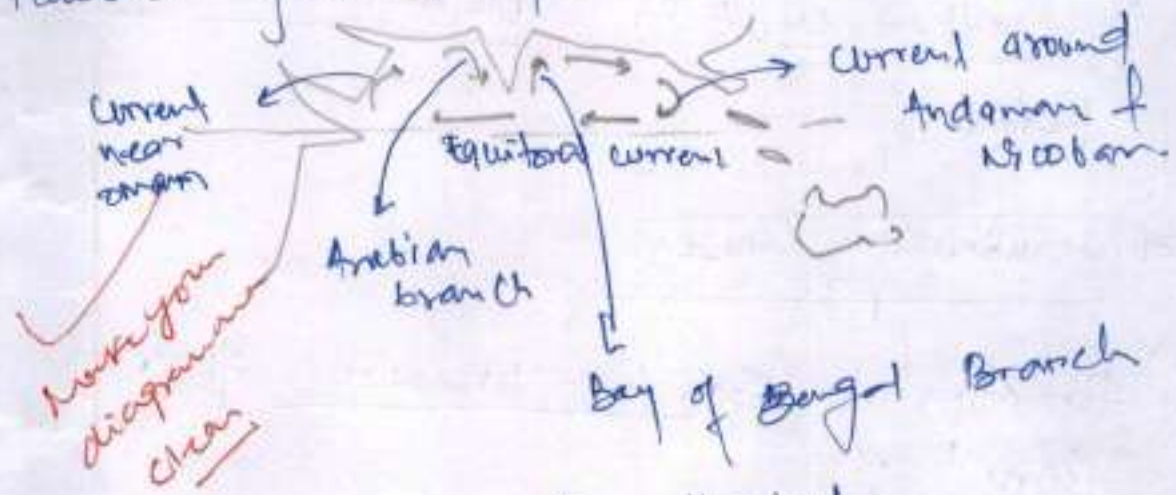 Current
near
oman
Equitoral current
current around
Andaman &
Nicobar.
Arabian
branch
Bay of Bengal Branch
Make your
diagrams
clear